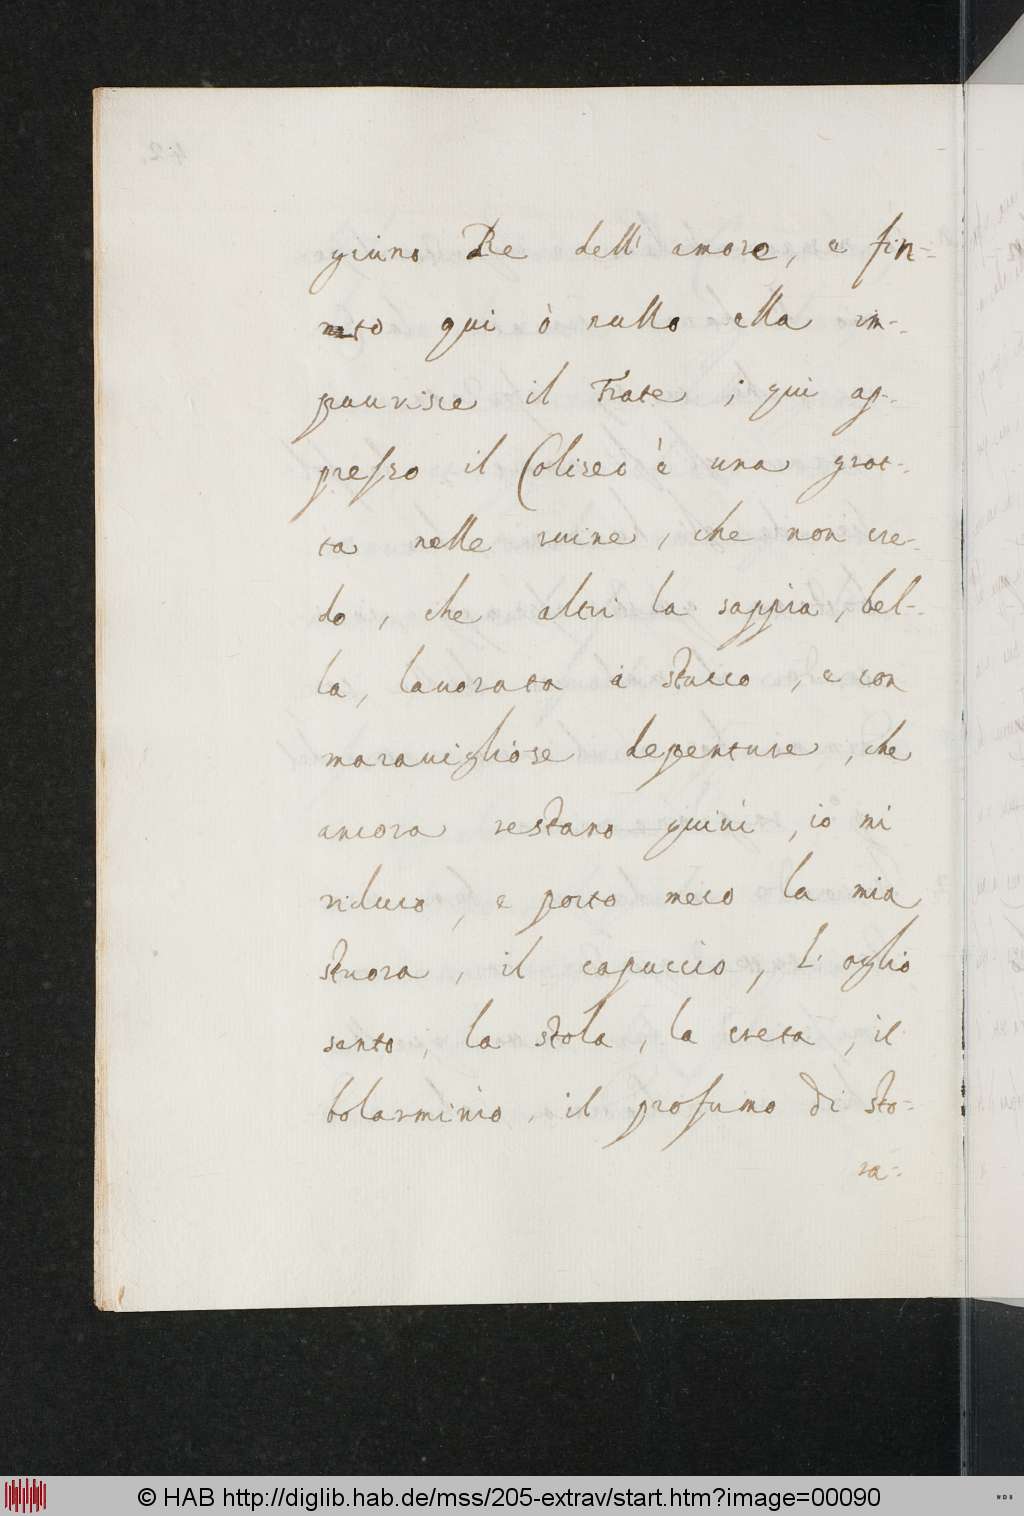 giuno Re dell' amore, e fin-
to qui ò nullo ella im-
paurisce il Frate; qui ap-
presso il Coliseo è una grot-
ta nelle ruine, che non cre-
do, che altri la sappia, bel-
la, lauorata a stucco, e con
marauigliose depenture, che
ancora restano quiui, io mi
riduco, e porto meco la mia
stuora, il capuccio, l'oglio
santo, la stola, la creta, il
bolarminio, il profumo di sto-
ra-
© HAB http://diglib.hab.de/mss/205-extrav/start.htm?image=00090